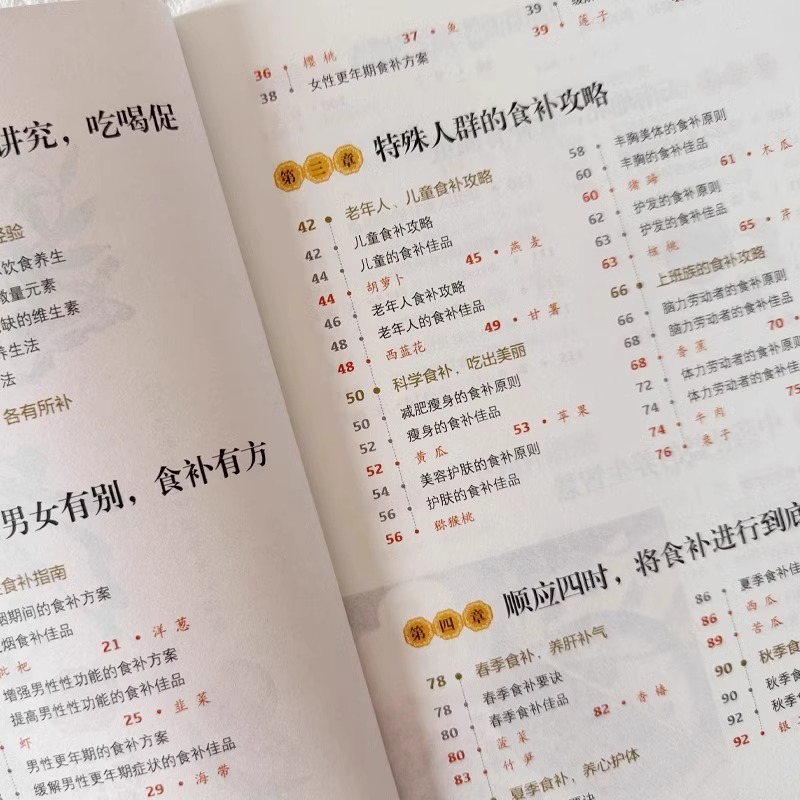 讲究，吃喝促
经验
饮食养生
微量元素
缺的维生素
养生法
法
各有所补
男女有别，食补有方
食补指南
烟期间的食补方案
烟食补佳品
枇杷 21 • 洋葱
增强男性性功能的食补方案
提高男性性功能的食补佳品
虾 25 • 韭菜
男性更年期的食补方案
缓解男性更年期症状的食补佳品
29 • 海带
36 • 樱桃 37 • 鱼
38 女性更年期食补方案
39 • 莲子
第三章 特殊人群的食补攻略
42 老年人、儿童食补攻略
42 儿童食补攻略
44 儿童的食补佳品
44 • 胡萝卜 45 • 燕麦
46 老年人食补攻略
48 老年人的食补佳品
48 • 西蓝花 49 • 甘薯
50 科学食补，吃出美丽
50 减肥瘦身的食补原则
52 瘦身的食补佳品
52 • 黄瓜 53 • 苹果
54 美容护肤的食补原则
56 护肤的食补佳品
56 • 猕猴桃
58 丰胸美体的食补原则
60 丰胸的食补佳品
60 • 猪蹄 61 • 木瓜
62 护发的食补原则
63 护发的食补佳品
63 • 核桃 65 • 芹
66 上班族的食补攻略
66 脑力劳动者的食补原则
68 脑力劳动者的食补佳品
68 • 香蕉 70 •
72 体力劳动者的食补原
74 体力劳动者的食补佳
74 • 牛肉 75
76 • 栗子
第四章 顺应四时，将食补进行到底
78 春季食补，养肝补气
78 春季食补要诀
80 春季食补佳品
80 • 菠菜 82 • 香椿
83 • 竹笋
夏季食补，养心护体
86 夏季食补佳
86 • 西瓜
89 • 苦瓜
90 秋季食
90 秋季食
92 秋季
92 • 银